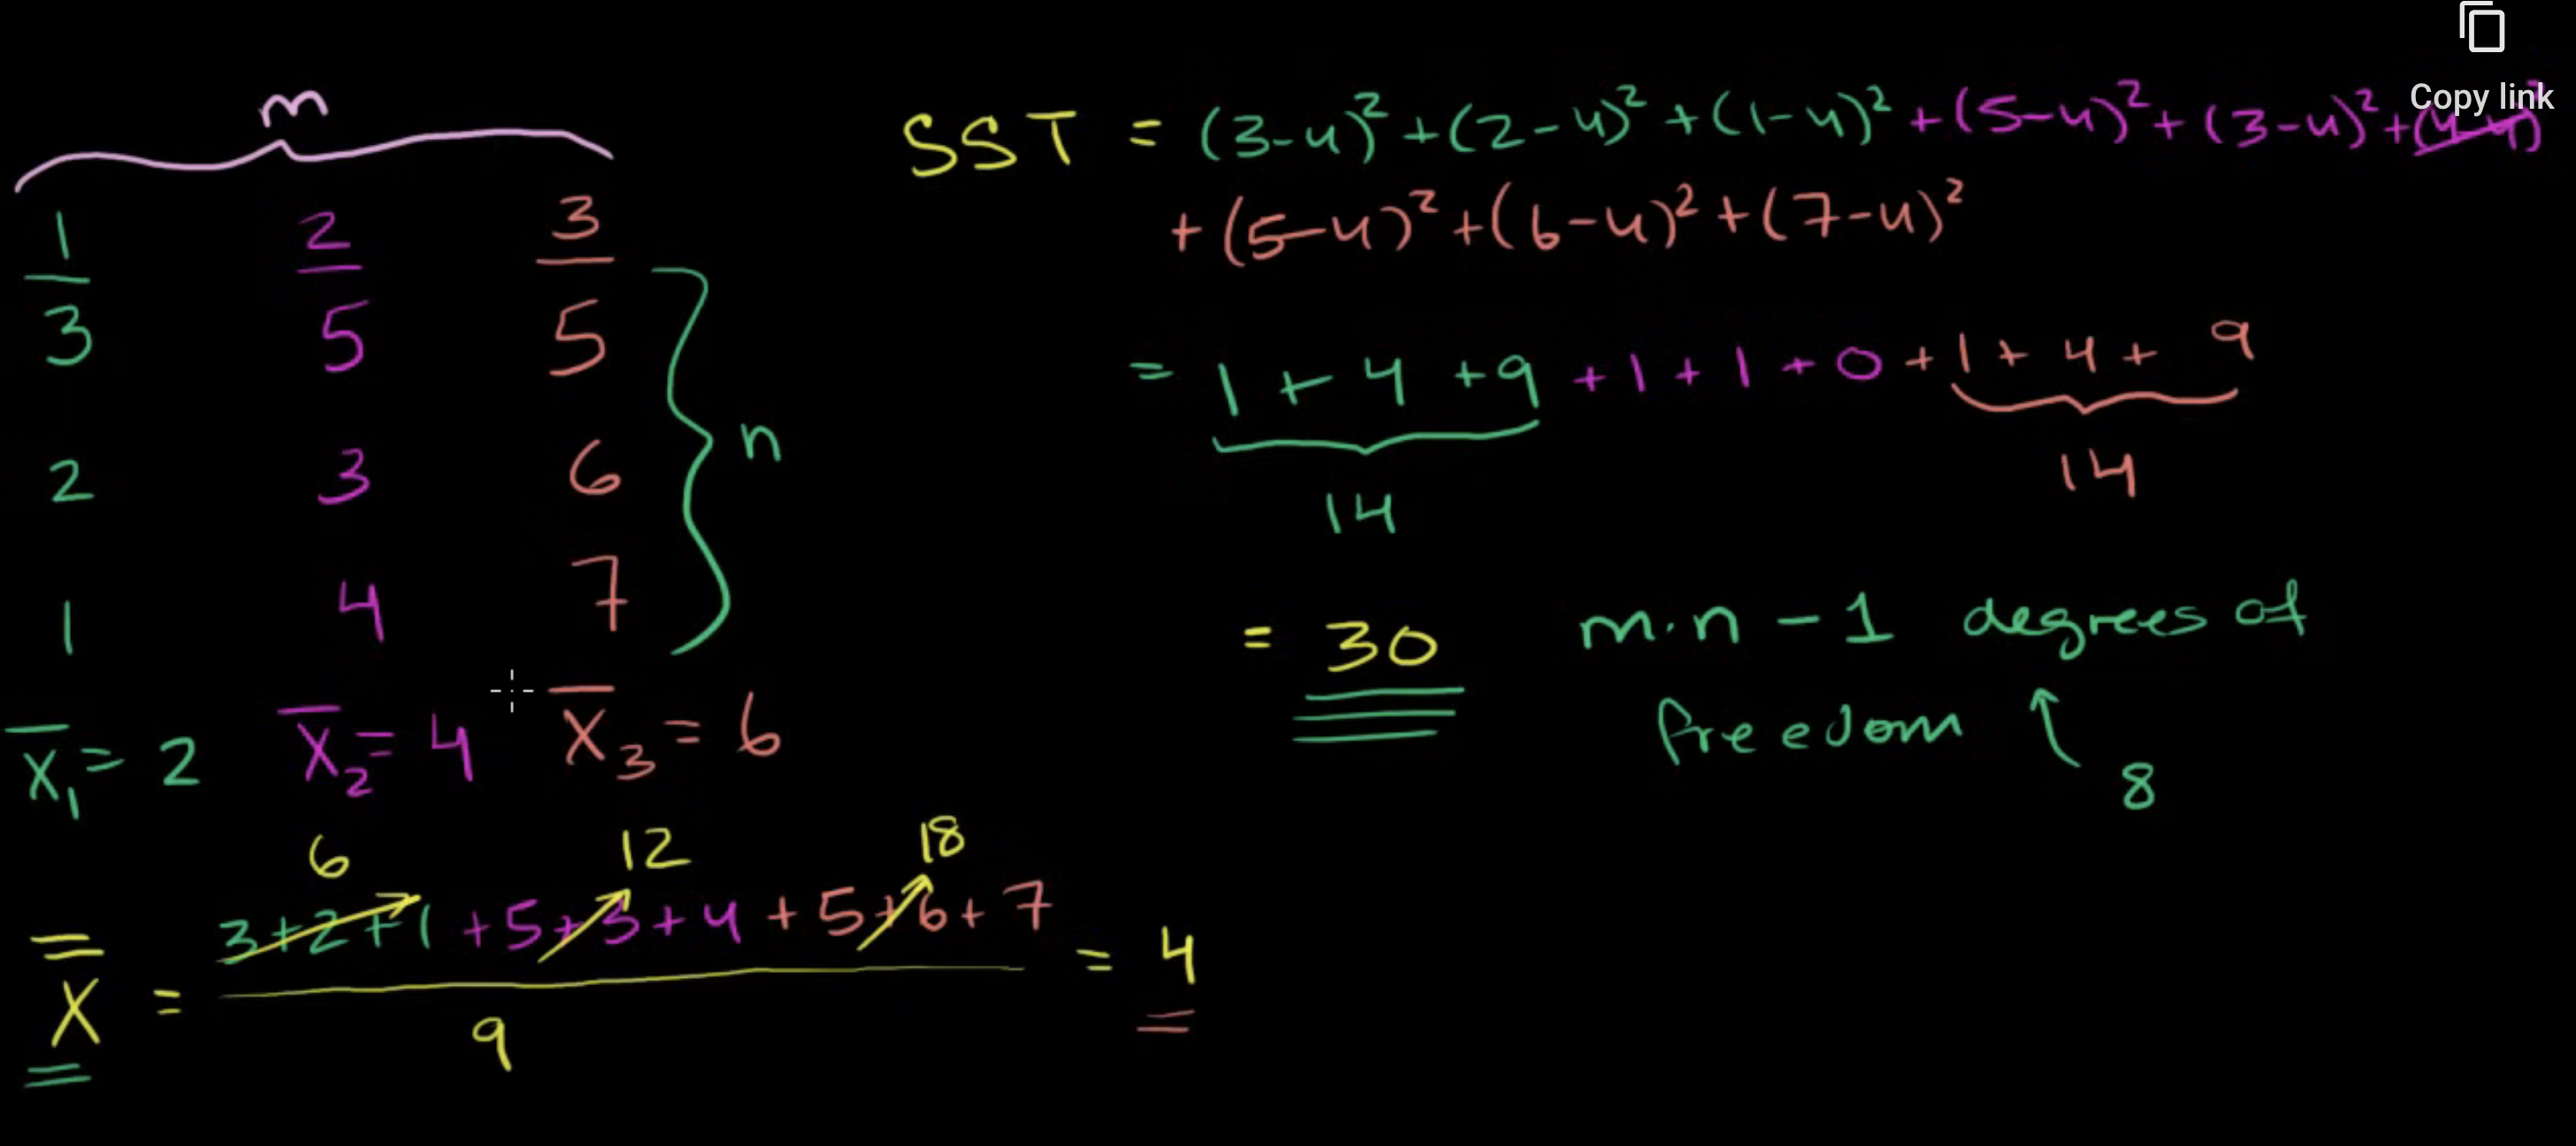 Copy link
m
1 2 3
3 5 5
2 3 6
1 4 7
n
X̅₁ = 2 X̅₂ = 4 X̅₃ = 6
6 12 18
3+2+1 +5+3+4 + 5+6+7
X̿ = = 4
9
SST = (3-4)² + (2-4)² + (1-4)² + (5-4)² + (3-4)² + (4-4)²
+ (5-4)² + (6-4)² + (7-4)²
= 1 + 4 + 9 + 1 + 1 + 0 + 1 + 4 + 9
14 14
= 30 m·n - 1 degrees of
freedom
8